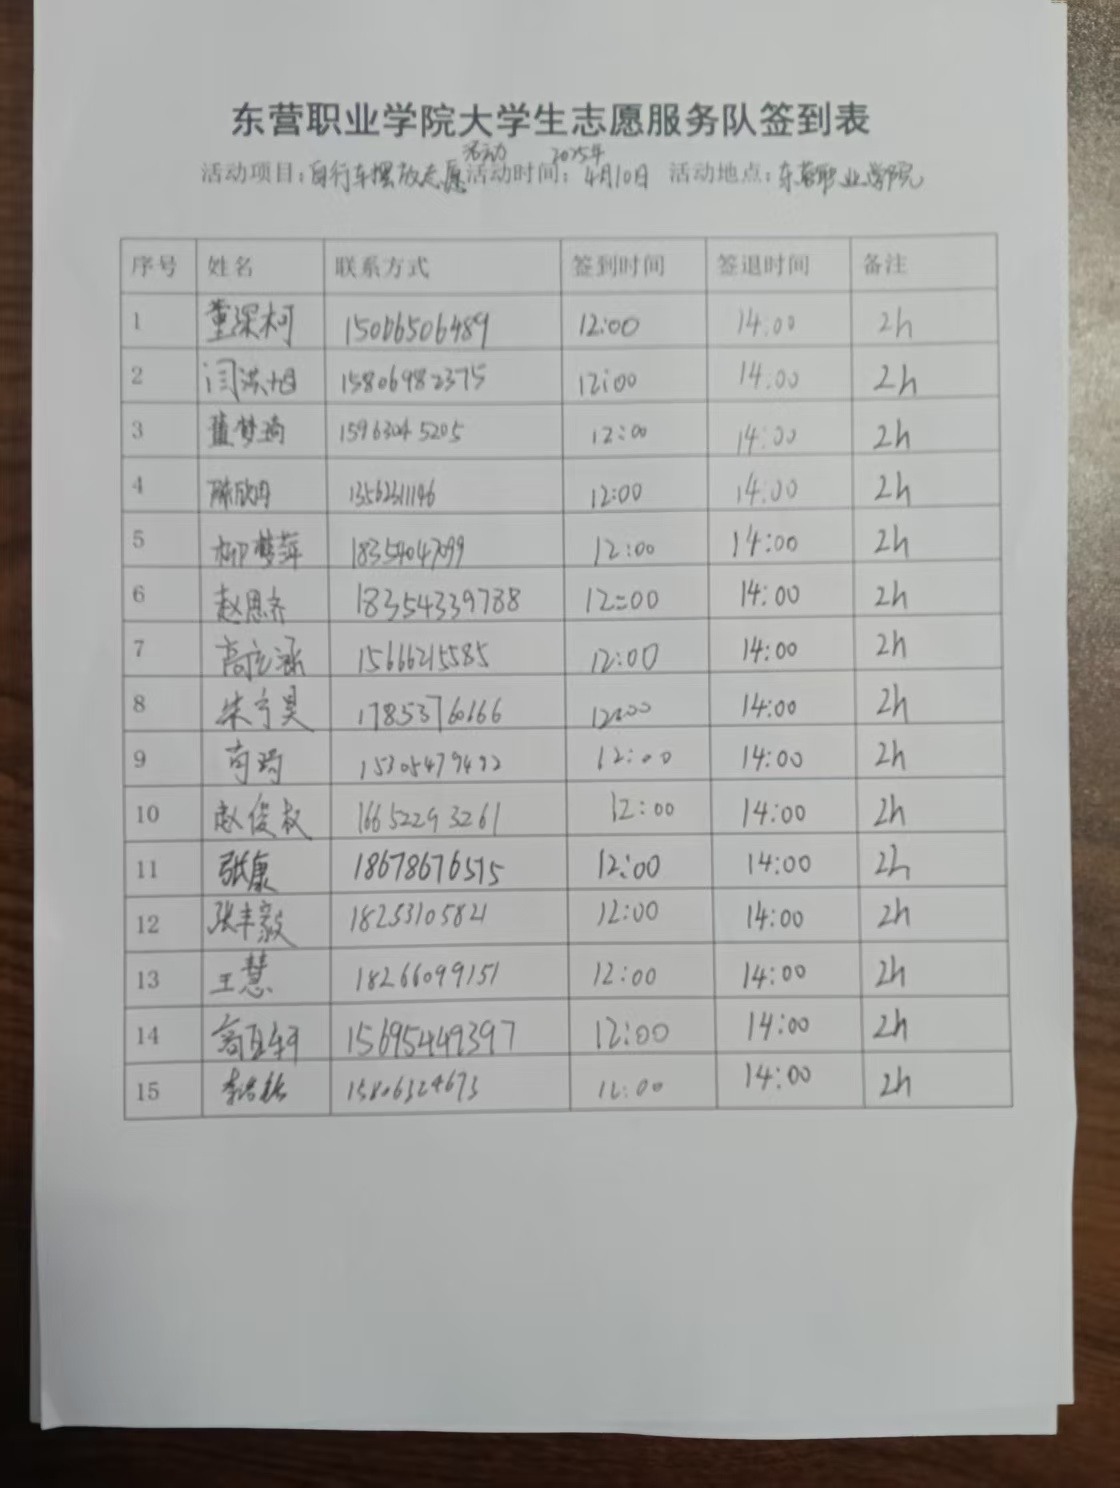 东营职业学院大学生志愿服务队签到表
活动 2025年
活动项目：自行车摆放志愿 活动时间：4月10日 活动地点：东营职业学院
序号 姓名 联系方式 签到时间 签退时间 备注
1 董深柯 15006506489 12:00 14:00 2h
2 闫洪旭 15806982375 12:00 14:00 2h
3 董梦琦 15963045205 12:00 14:00 2h
4 陈欣月 13562311146 12:00 14:00 2h
5 柳梦萍 12:00 14:00 2h
6 赵思齐 18354339788 12:00 14:00 2h
7 高亦涵 15666215585 12:00 14:00 2h
8 朱宁昊 17853760166 12:00 14:00 2h
9 苟琦 15305479492 12:00 14:00 2h
10 赵俊权 16652293261 12:00 14:00 2h
11 张康 18678676515 12:00 14:00 2h
12 张丰毅 18253105821 12:00 14:00 2h
13 王慧 18266099151 12:00 14:00 2h
14 15695449397 12:00 14:00 2h
15 15806324673 12:00 14:00 2h